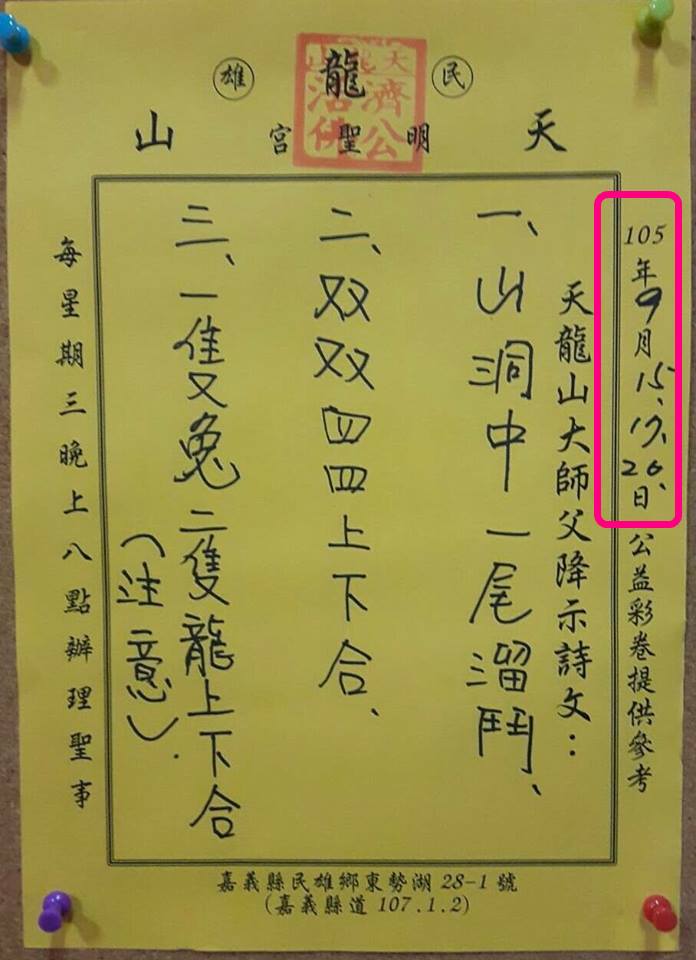 民 龍 雄
天 明 聖 宮 山
天龍山
濟公
活佛
105年9月15、17、20、日 公益彩卷提供參考
天龍山大師父降示詩文：
一、山洞中一尾溜鬥、
二、双双四四上下合、
三、一隻又兔二隻龍上下合
（注意）.
每星期三晚上八點辦理聖事
嘉義縣民雄鄉東勢湖 28-1 號
(嘉義縣道 107.1.2)